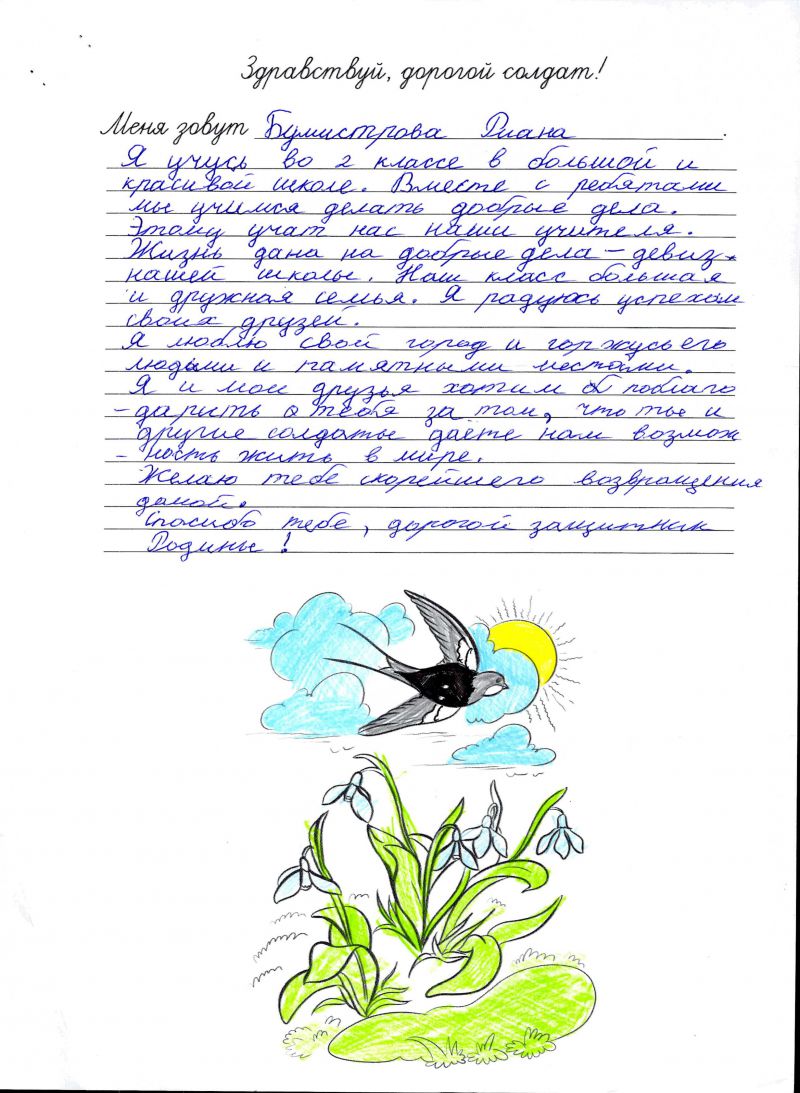 Здравствуй, дорогой солдат!
Меня зовут Бумистрова Риана.
Я учусь во 2 классе в большой и
красивой школе. Вместе с ребятами
мы учимся делать добрые дела.
Этому учат нас наши учителя.
Жизнь дана на добрые дела – девиз
нашей школы. Наш класс большая
и дружная семья. Я радуюсь успехом
своих друзей.
Я люблю свой город и горжусь его
людьми и памятными местами.
Я и мои друзья хотим поблаго
-дарить тебя за том, что ты и
другие солдаты даёте нам возмож
-ность жить в мире.
Желаю тебе скорейшего возвращения
домой.
Спасибо тебе, дорогой защитник
Родины!